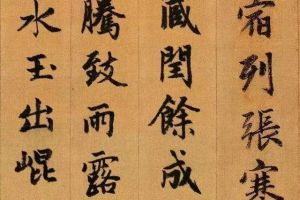 宿列張寒
藏閏餘成
騰致雨露
水玉出崐